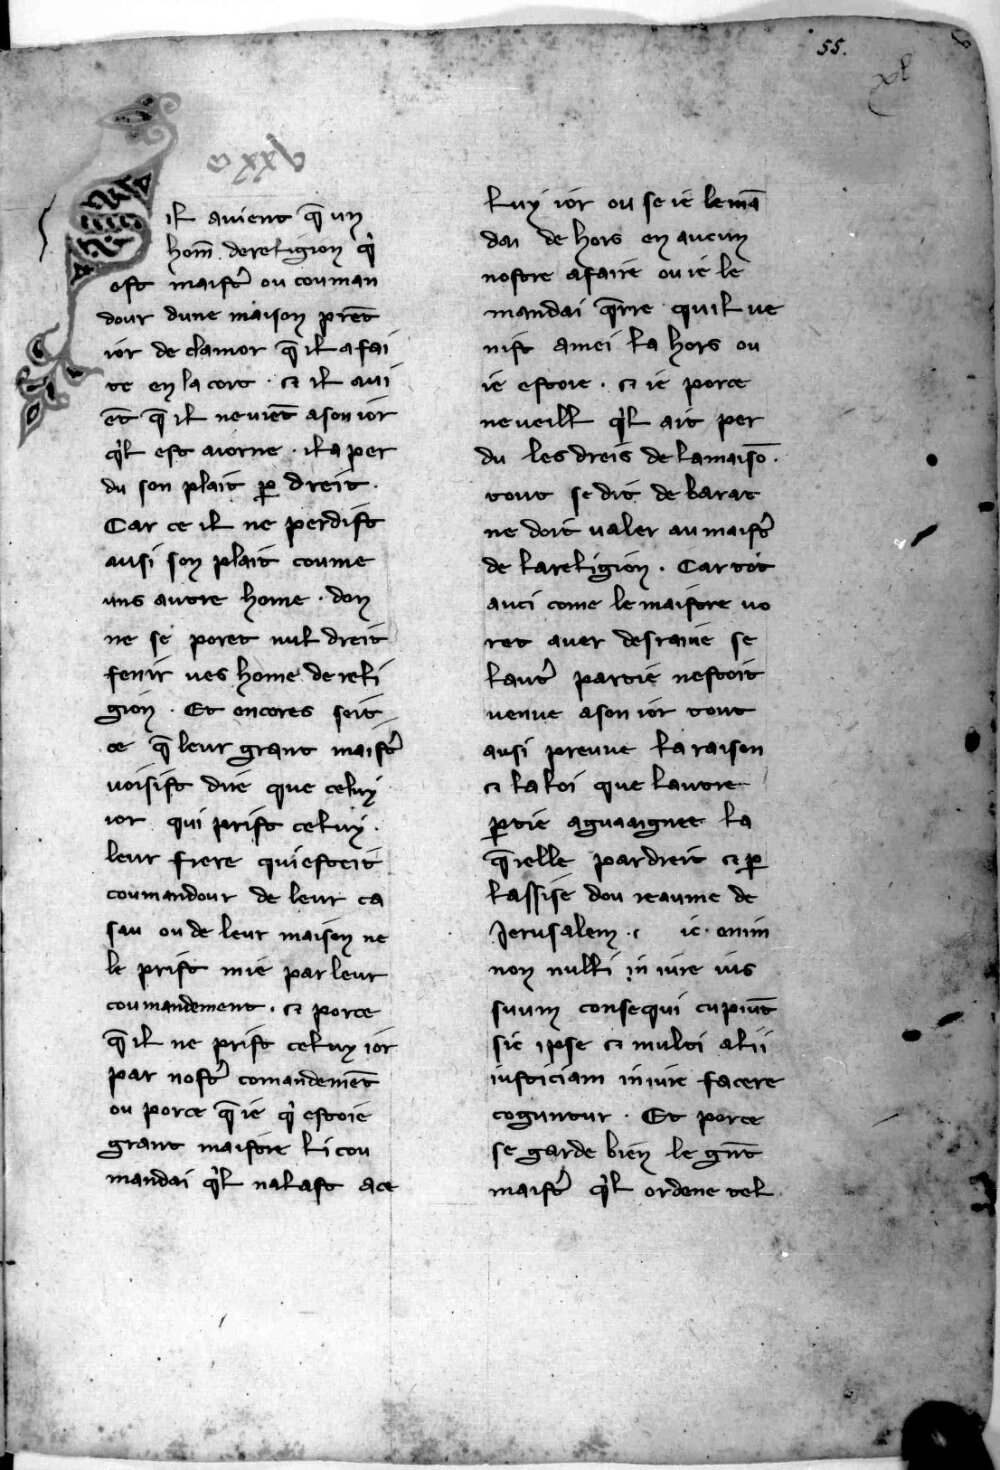 55.
xl
cxxv
Sil avient q̄ un
hom̄ de religion qi
est maistr̓ ou couman
dour dune maison prēt
ior de clamor q̄ il a fai
te en la cort . ⁊ il avi
ēt q̄ il ne viēt a son ior
qil est aiorne . il a per
du son plait ꝑ dreit .
Car ce il ne perdist
ausi son plait coume
uns autre home . don
ne se poret nul dreit
fenir ves home de reli
gion . Et encores soit
ce q̄ leur grant maistr̓
voisist dire que celuy
ior qui prist celuy .
leur frere qui esteit
coumandour de leur ca
sau ou de leur maison ne
le prist mie par leur
coumandement . ⁊ porce
q̄ il ne prist celuy ior
par nostr̓ comandemēt
ou porce q̄ ie qi estoie
grant maistre li cou
mandai qil nalast a ce
luy ior ou se ie le mā
dai de hors en aucun
nostre afaire ou ie le
mandai q̄rre quil ve
nist a mei la hors ou
ie estoie . ⁊ ie porce
ne veill qil ait per
du les dreis de la maisō .
tout se dit de barat
ne doit valer au maistr̓
de la religion . Car tot
auci come le maistre vo
ret aver desraine se
lautr̓ partie nestoit
venue a son ior tout
ausi preuve la raison
⁊ la loi que lautre
ꝑtie aguaignet la
q̄relle par dreit ⁊ ꝑ
lassise dou reaume de
Jerusalem . c ic . enim
non nulli in iure ius
suum consequi cupiūt
sic ipse ⁊ multi alii
iusticiam in iure facere
coguntur . Et porce
se garde bien le gr̄nt
maistr̓ qil ordene tel